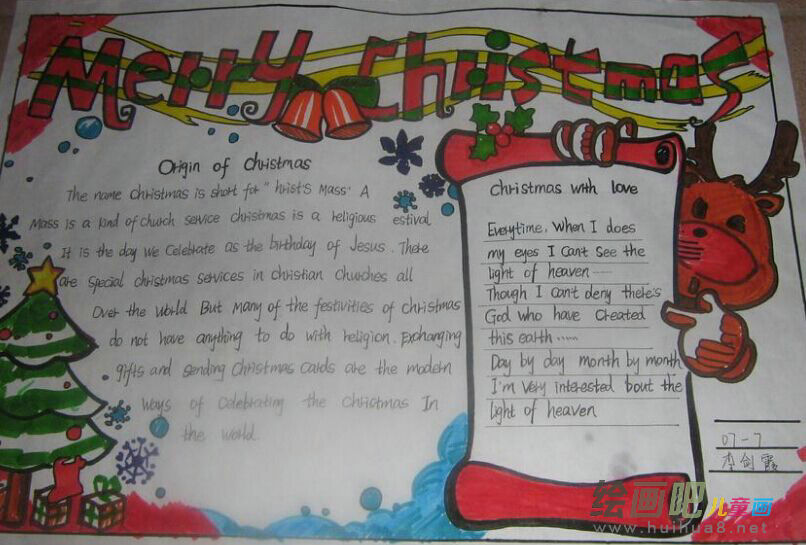 Merry Christmas
Origin of Christmas
The name Christmas is short for "hrist's Mass". A
Mass is a kind of church service christmas is a religious estival
It is the day We Celebrate as the birthday of Jesus. There
are special christmas services in christian churches all
Over the World But many of the festivities of christmas
do not have anything to do with religion. Exchanging
gifts and sending Christmas Cards are the modern
ways of Celebrating the Christmas In
the world.
Christmas with love
Everytime, When I does
my eyes I Can't See the
light of heaven ......
Though I Can't deny there's
God who have Created
this earth ......
Day by day month by month
I'm Very interested 'bout the
light of heaven
07-7
李剑霞
绘画吧儿童画
www.huihua8.net